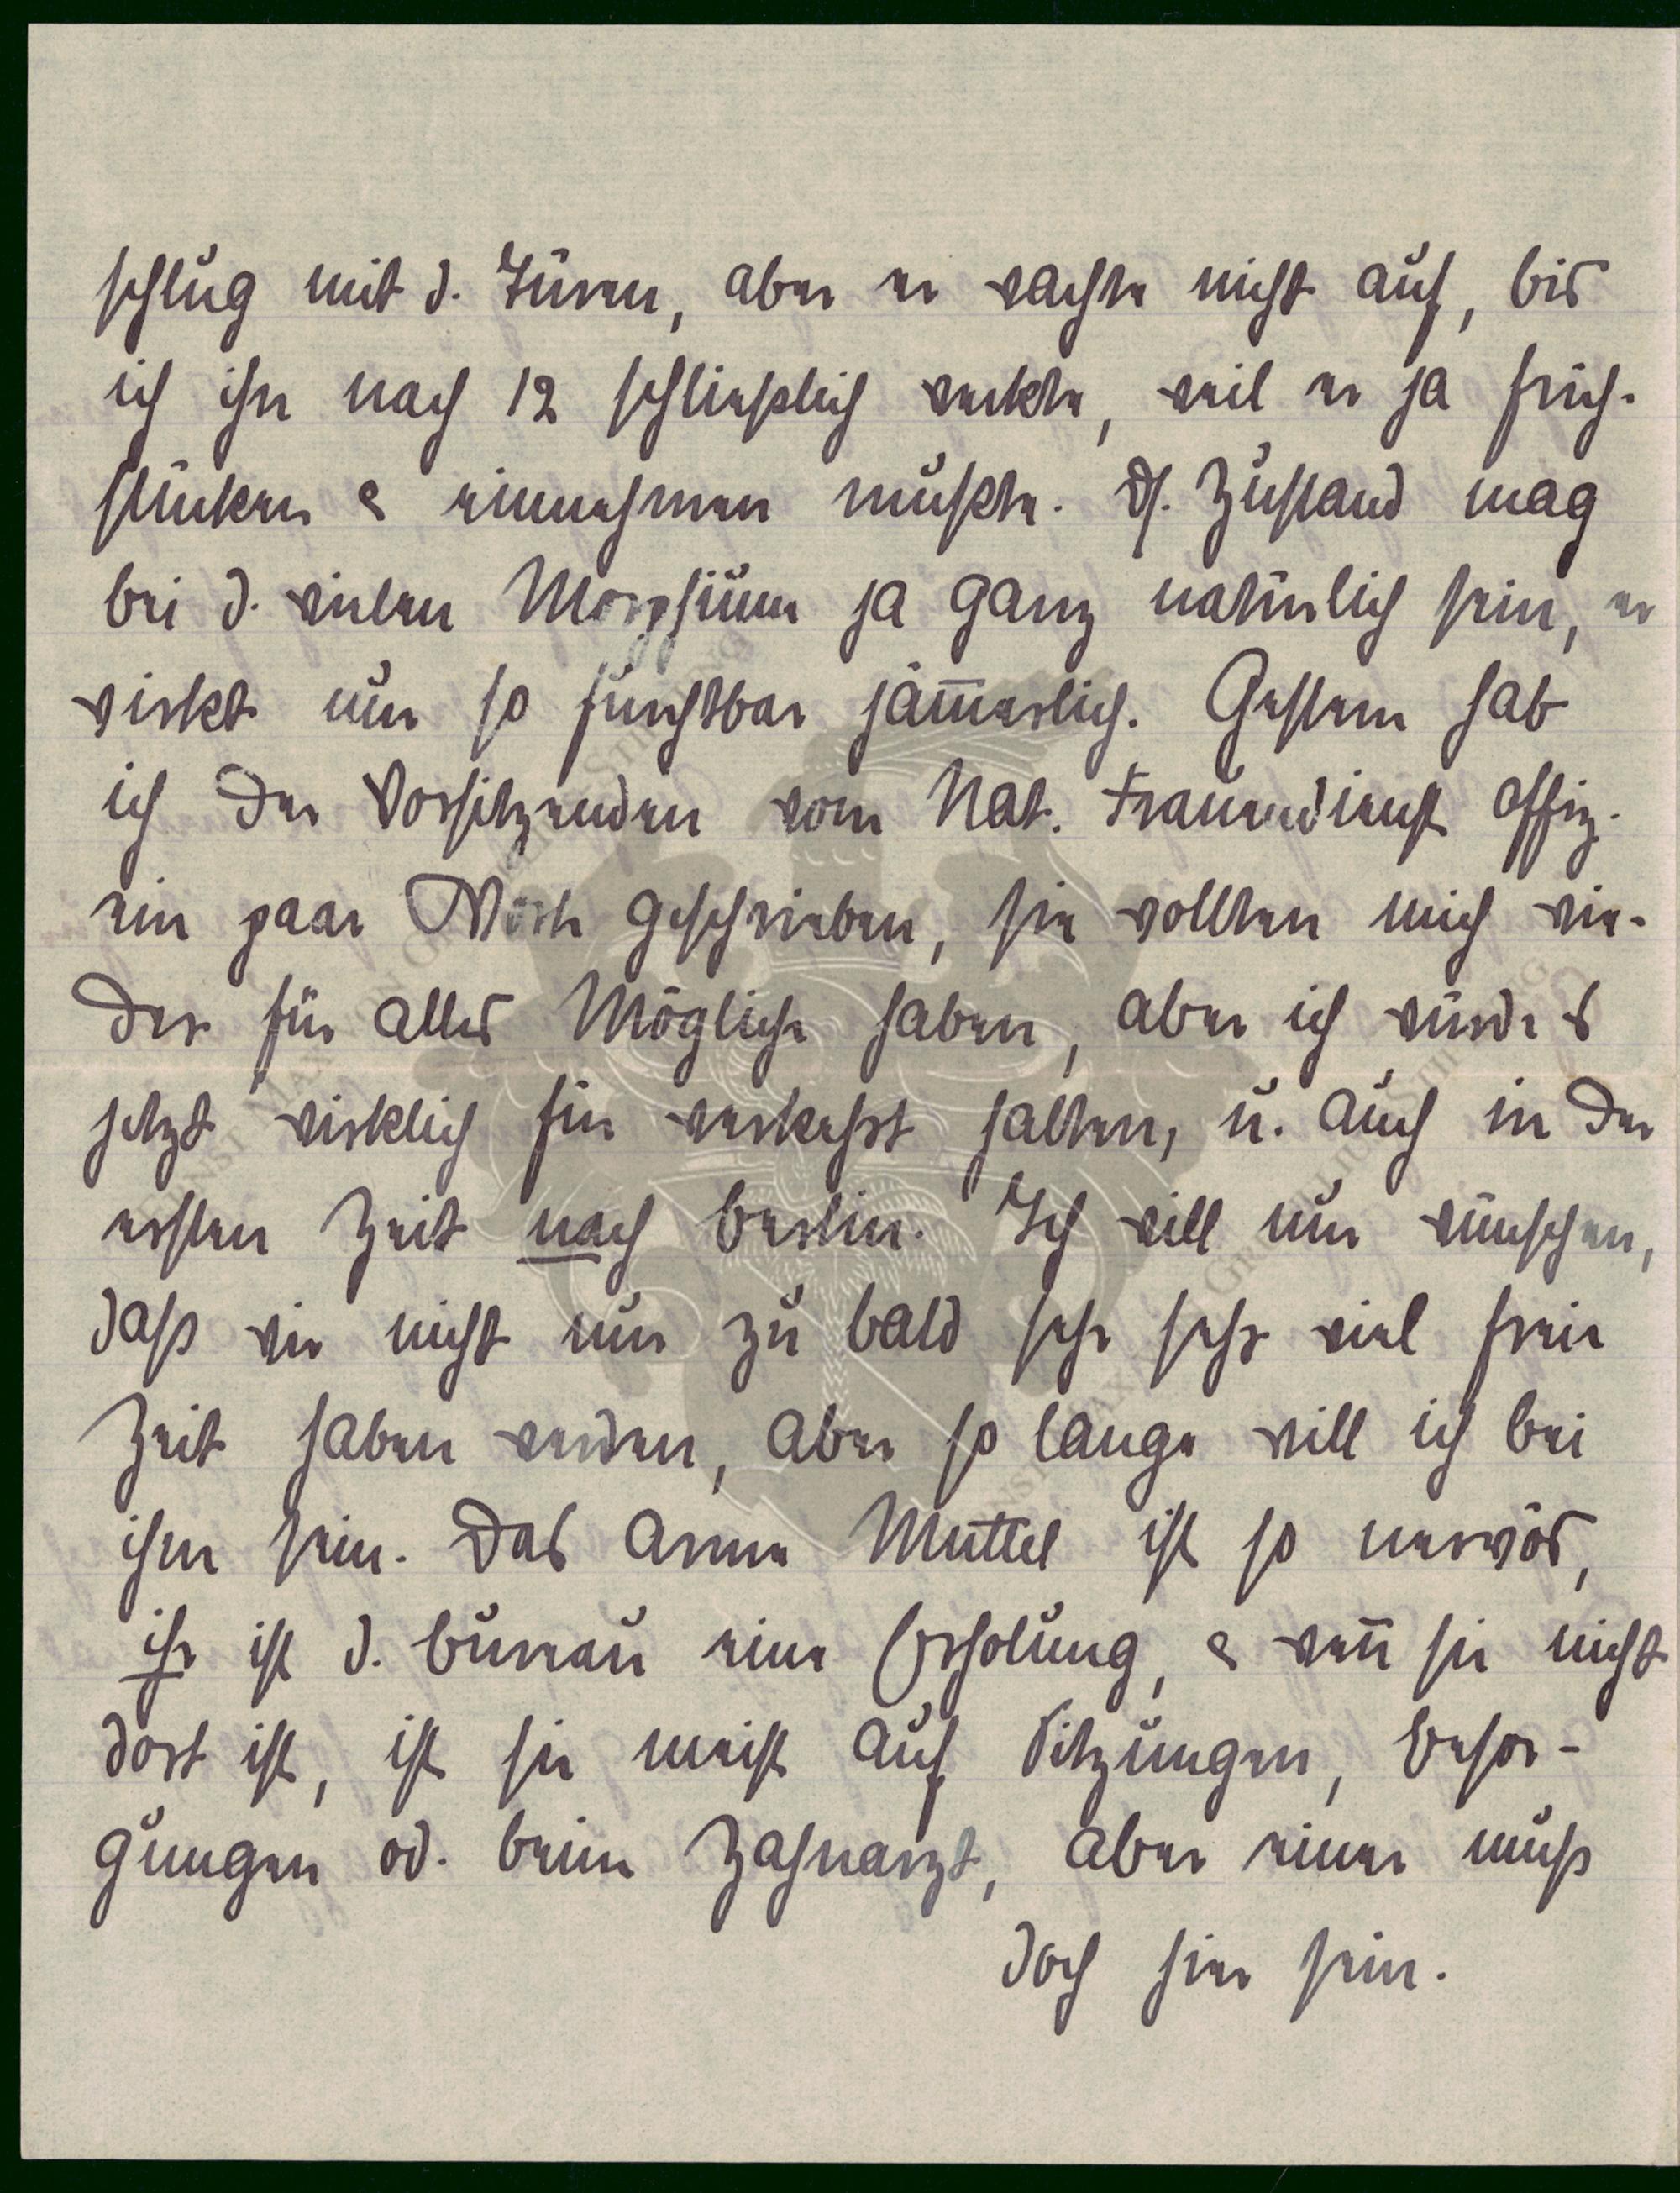 schlug mit d. Türen, aber er wachte nicht auf, bis
ich ihn nach 12 schliesslich weckte, weil er ja früh-
stücken & einnehmen musste. Ds. Zustand mag
bei d. vielen Morphium ja ganz natürlich sein, er
wirkt nur so furchtbar jam̄erlich. Gestern hab
ich der Vorsitzenden vom Nat. Frauendienst offiz.
ein paar Worte geschrieben, sie wollten mich wie-
der für alles Mögliche haben, aber ich würde es
jetzt wirklich für verkehrt halten, u. auch in der
ersten Zeit nach Berlin. Ich will nur wünschen,
dass wir nicht nur zu bald sehr sehr viel freie
Zeit haben werden, aber so lange will ich bei
ihm sein. Das arme Muttel ist so nervös,
ihr ist d. Bureau eine Erholung, & wen̄ sie nicht
dort ist, ist sie meist auf Sitzungen, Besor-
gungen od. beim Zahnarzt, aber einer muss
doch hier sein.
ERNST MAX VON GRUNELIUS STIFTUNG